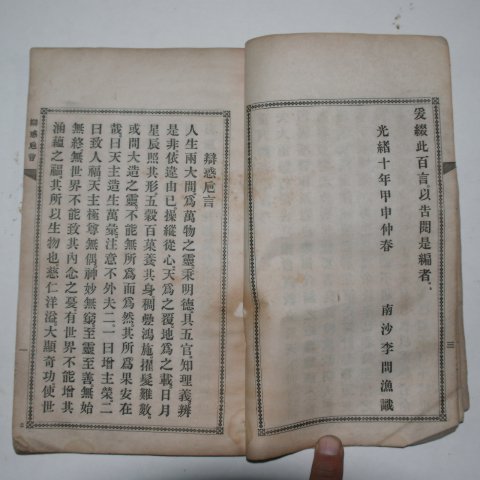 爰綴此百言以告閱是編者
光緒十年甲申仲春
南沙李問漁識
三
辯惑卮言
辯惑卮言
人生兩大間爲萬物之靈秉明德具五官知理義辨
是非依違由已操縱從心天爲之覆地爲之載日月
星辰照其形五穀百菓養其身稠疊鴻施擢髮難數
或問大造之初不能無所爲而爲然其所爲果安在
哉曰天主造生萬彙注意不外夫二一曰增主榮二
曰致人福天主極尊無偶神妙無窮至靈至善無始
無終無世界不能致其內念之憂有世界不能增其
涵蘊之福其所以生物也慈仁洋溢大顯奇功使世
一